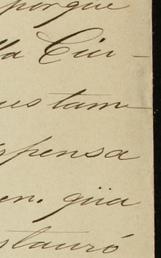 porque
lla Ciu-
us tam
spensa
en. güa
stauró